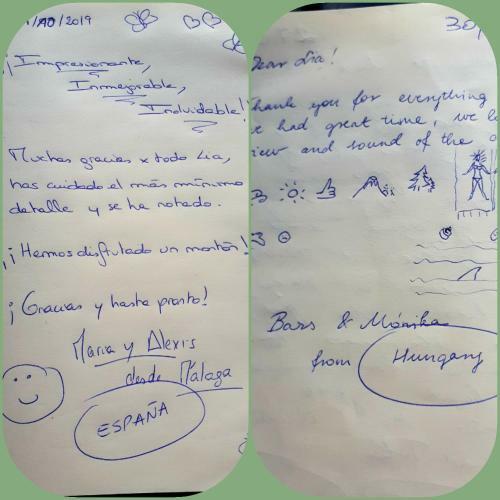 /AO/2019
¡Impresionante,
Inmejorable,
Inolvidable!
Muchas gracias x todo Lia,
has cuidado el más mínimo
detalle y se ha notado.
¡¡Hemos disfrutado un montón!
¡Gracias y hasta pronto!
Maria y Alexis
desde Málaga
ESPAÑA
Dear Lia!
Thank you for everything
had great time, we
view and sound of the
Bars & Mónika
from Hungary